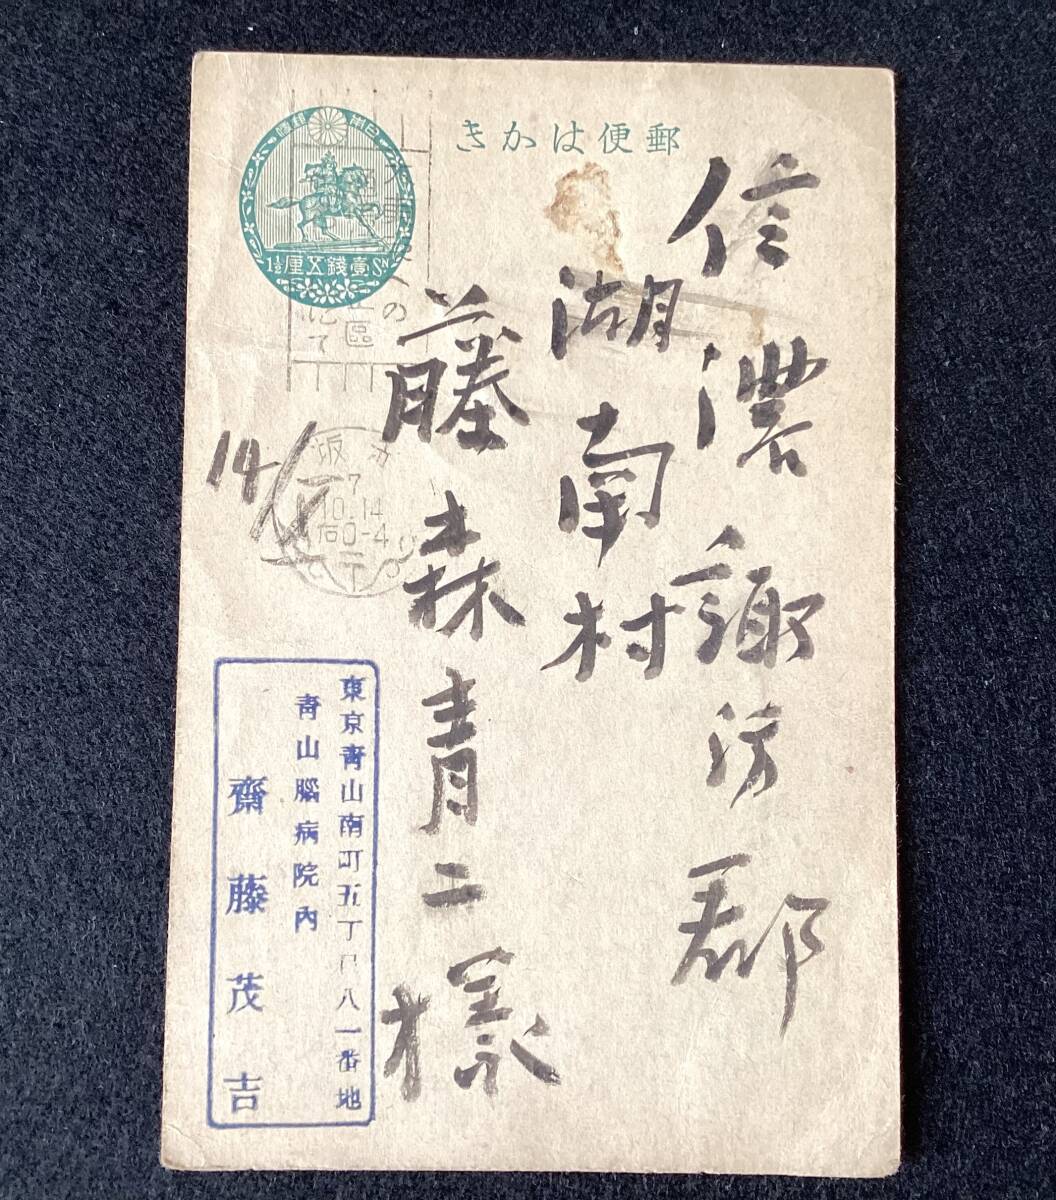 郵便はかき
壹錢五厘
1½ Sn
信濃諏訪郡
湖南村
藤森青二樣
14/X
坂
7
10.14
后0-4
の
區
て
東京青山南町五丁目八一番地
青山腦病院內
齋藤茂吉